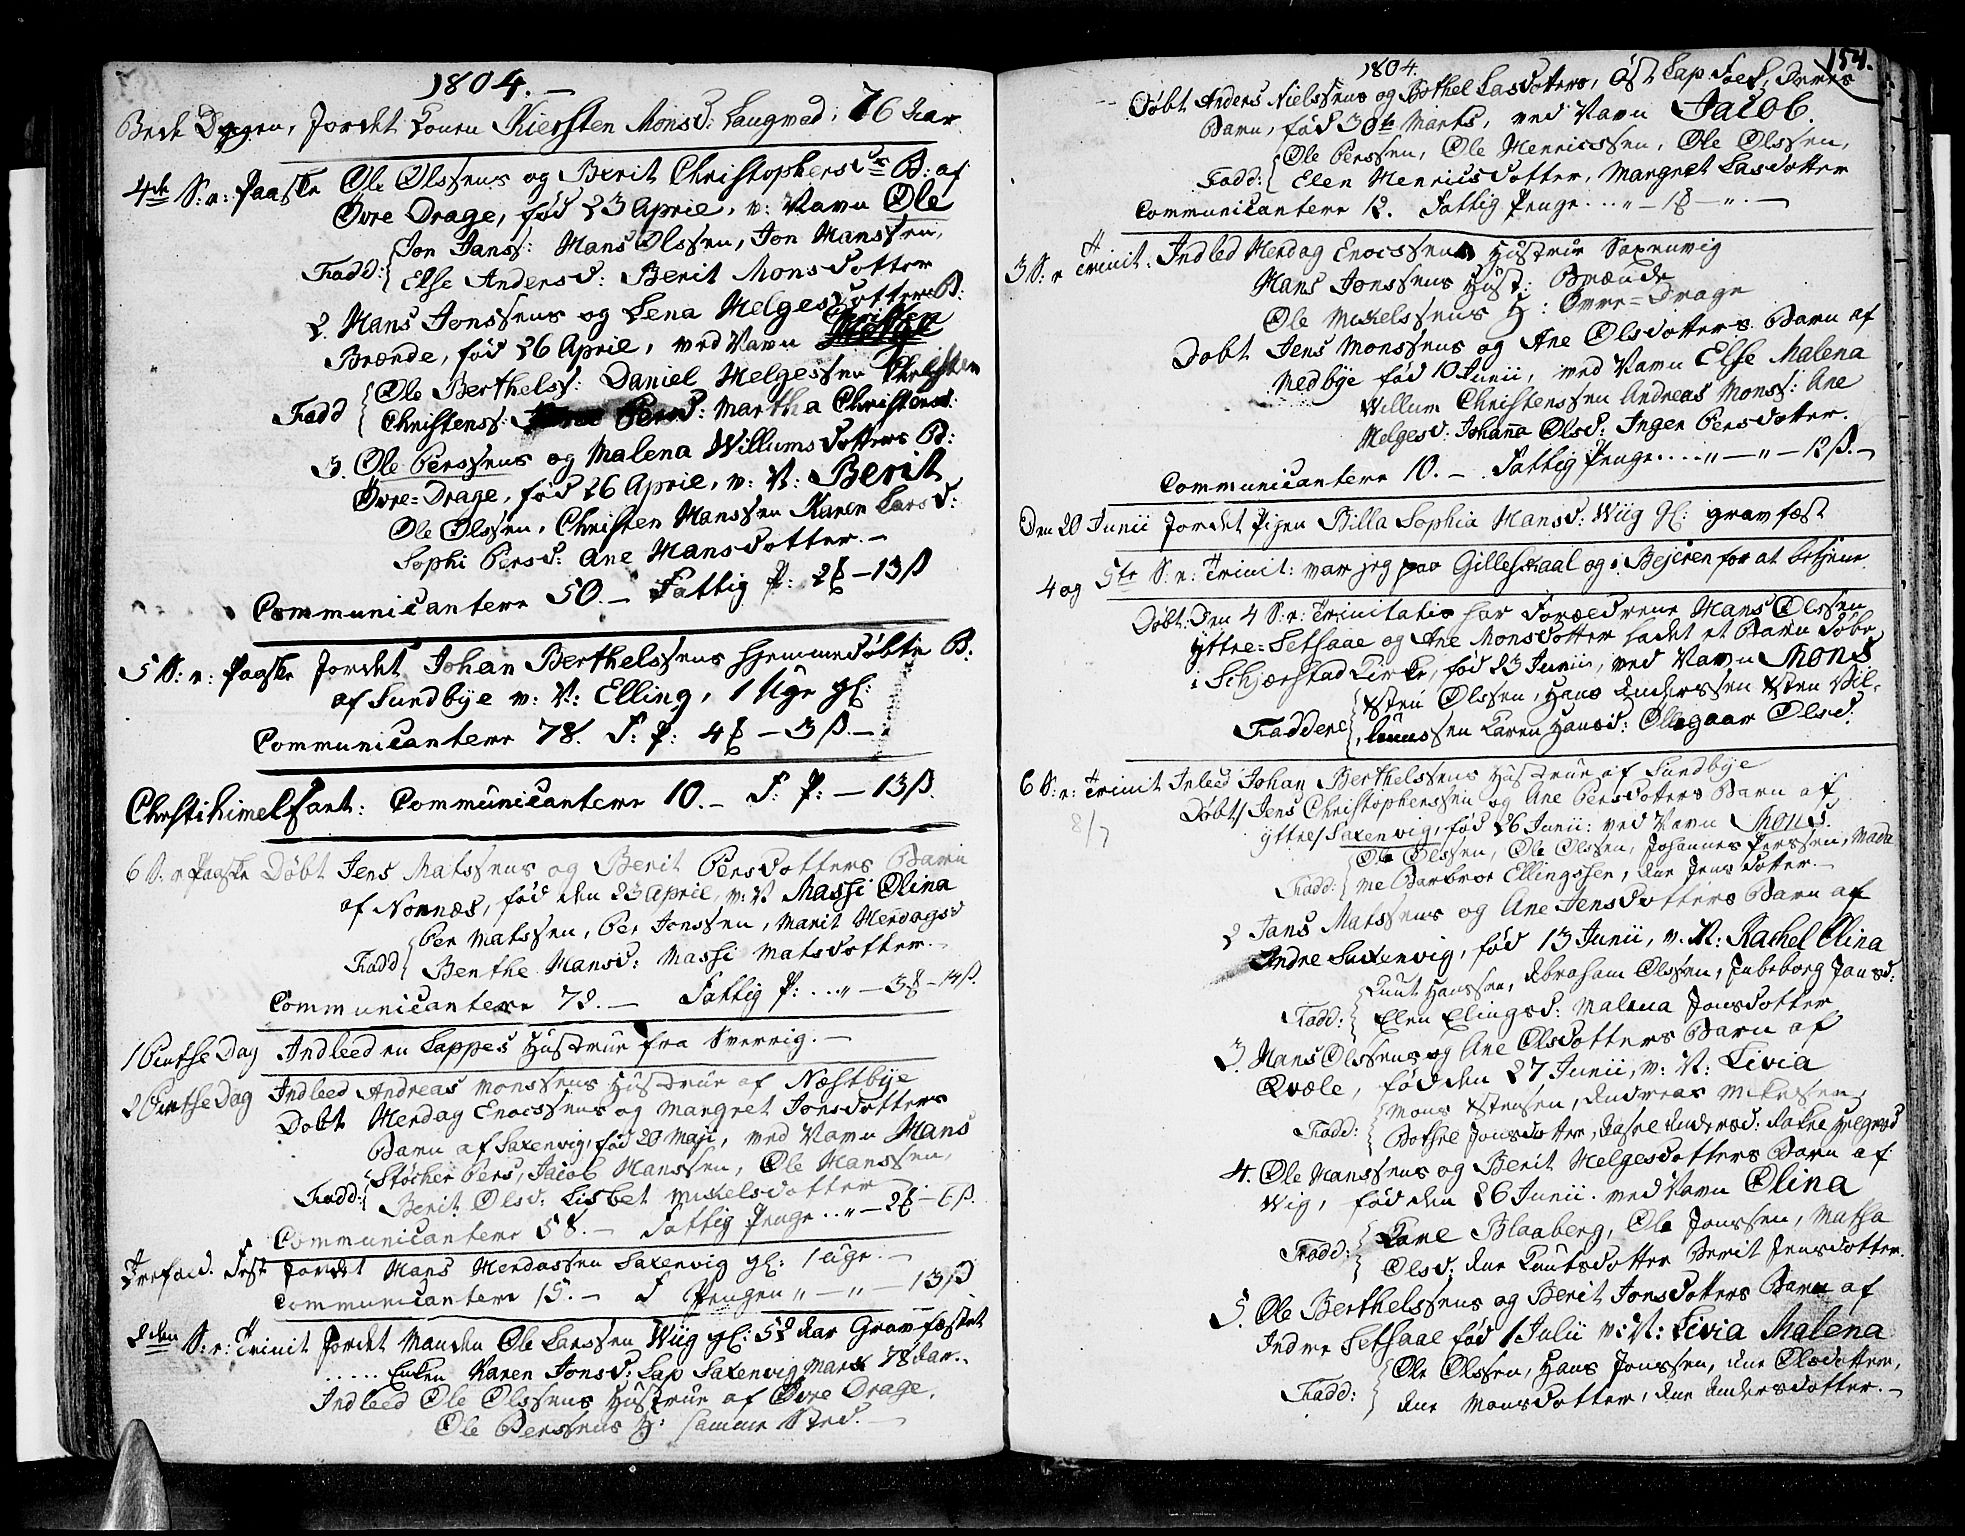 1804.
Bede Dagen, Jordet Konen Kiersten Monsd: Langvad, 76 Aar
4de S: e: Paaske Ole Olssens og Berit Christophersdr B: af
Øvre Drage, fød 23 April, v: Navn Ole
Fadd: Jon Jans: Hans Olssen, Jon Hanssen,
Else Andersd: Berit Monsdotter
2. Hans Jonssens og Lena Helgesdotters B:
Brænde, fød 26 April, ved Navn
Fadd Ole Berthels: Daniel Helgessen Christen
Christens: Persd: Martha Christensd:
3. Ole Perssens og Malena Willumsdotters B:
Øvre-Drage, fød 26 April, v: N: Berit
Ole Olssen, Christen Hanssen Karen Larsd:
Sophi Persd: Ane Hansdotter.
Communicantere 50. Fattig P: 2 – 13 ß
5 S: e: Paaske Jordet Johan Berthelssens hjemmedøbte B:
af Sundbye v: N: Elling, 1 Uge gl:
Communicantere 78. F: P: 4 – 3 ß.
Christi himelfart: Communicantere 10. F: P: – 13 ß
6 S. e Paaske Døbt Jens Matssens og Berit Persdotters Barn
af Nornæs, fød den 23 April, v: N Massi Olina
Fadd Per Matssen, Per Jonssen, Marit Herdagsd
Benthe Hansd: Massi Matsdotter.
Communicantere 72. Fattig P: 3 – 14 ß.
1 Pintse Dag Indleed en Lappes Hustrue fra Sverrig.
2 Pintse Dag Indleed Andreas Monssens Hustrue af Næstbye
Døbt Herdag Enocssens og Margret Jonsdotters
Barn af Saxenvig, fød 20 Maji, ved Navn Hans
Fadd: Støcher Pers, Jacob Hanssen, Ole Hanssen,
Berit Olsd: Lisbet Mikelsdotter
Communicantere 58. Fattig Penge 2 – 6 ß.
Trefold. Fest Jordet Hans Herdassen Saxenvig gl: 1 Uge.
Communicantere 15. F Penger – 13 ß
2den S: e: Trinit Jordet Manden Ole Larssen Wiig gl: 52 Aar Gravfæstet
Enken Karen Jonsd: Lap Saxenvig mark 78 Aar.
Indleed Ole Olssens Hustrue af Øvre Drage.
Ole Perssens H: samme Sted.
154.
1804.
Døbt Anders Nielssens og Bothel Lasdotters, Øst Lap Folk, Deres
Barn, fød 30te Marts, ved Navn Jacob.
Fadd: Ole Perssen, Ole Henricssen, Ole Olssen,
Elen Henricsdotter, Margret Lasdotter
Communicantere 12. Fattig Penge – 1
3 S: e Trinit: Indled Herdag Enocssens Hustrue Saxenvig
Hans Jonssens Hust: Brænde
Ole Mikelssens H: Øvre-Drage
Døbt Jens Monssens og Ane Olsdotters Barn af
Nedbye fød 10 Junii, ved Navn Else Malena
Willum Christenssen Andreas Monss: Ane
Helgesd: Johanna Olsd: Inger Persdotter.
Communicantere 10. Fattig Penge – 12 ß.
Den 20 Junii Jordet Pigen Billa Sophia Hansd: Wiig gl: gravfæst
4 og 5te S: e: Trinit: var jeg paa Gilleskaal og i Bejeren for at betjene
Døbt: Den 4 S: e: Trinitatis har Forældrene Hans Olssen
Yttre-Setsaae og Ane Monsdotter ladet et Barn døbe
i Schjerstad Kirke, fød 23 Junii, ved Navn Mons
Faddere Sten Olssen, Hans Anderssen Sten Vil-
lumssen Karen Hansd: Ollegaar Olsd.
6 S: e: Trinit Inleed Johan Berthelssens Hustrue af Sundbye
8/7
Døbt Jens Christopherssen og Ane Persdotters Barn af
yttre Saxenvig, fød 26 Junii: ved Navn Mons.
Fadd: Ole Olssen, Ole Olssen, Johannes Perssen, Mada
me Barbroe Ellingssen, Ane Jensdotter.
2 Jans Matssens og Ane Jensdotters Barn af
Indre Saxenvig, fød 13 Junii, v. N: Rachel Elina
Fadd: Knut Hanssen, Abraham Olssen, Inbeborg Jansd:
Elen Elingsd: Malena Jonsdotter
3. Hans Olssens og Ane Olsdotters Barn af
Qvæle, fød den 27 Junii, v: N: Livia
Fadd: Mons Stensen, Andreas Mikelsen
Bothel Jonsdotter, Andersd: Helgesd
4. Ole Hanssens og Berit Helgesdotters Barn af
Wig, fød den 26 Junii. ved Navn Olina
Fadd: Lars Blaaberg, Ole Jonssen, Matha
Olsd: Ane Knutsdotter Berit Jensdotter.
5. Ole Berthelssens og Berit Jonsdotters Barn af
Indre Setsaae fød 1 Julii v: N: Livia Malena
Fadd: Ole Olssen, Hans Jonssen, Ane Olsdotter,
Ane Monsdotter, Ane Andersdotter.